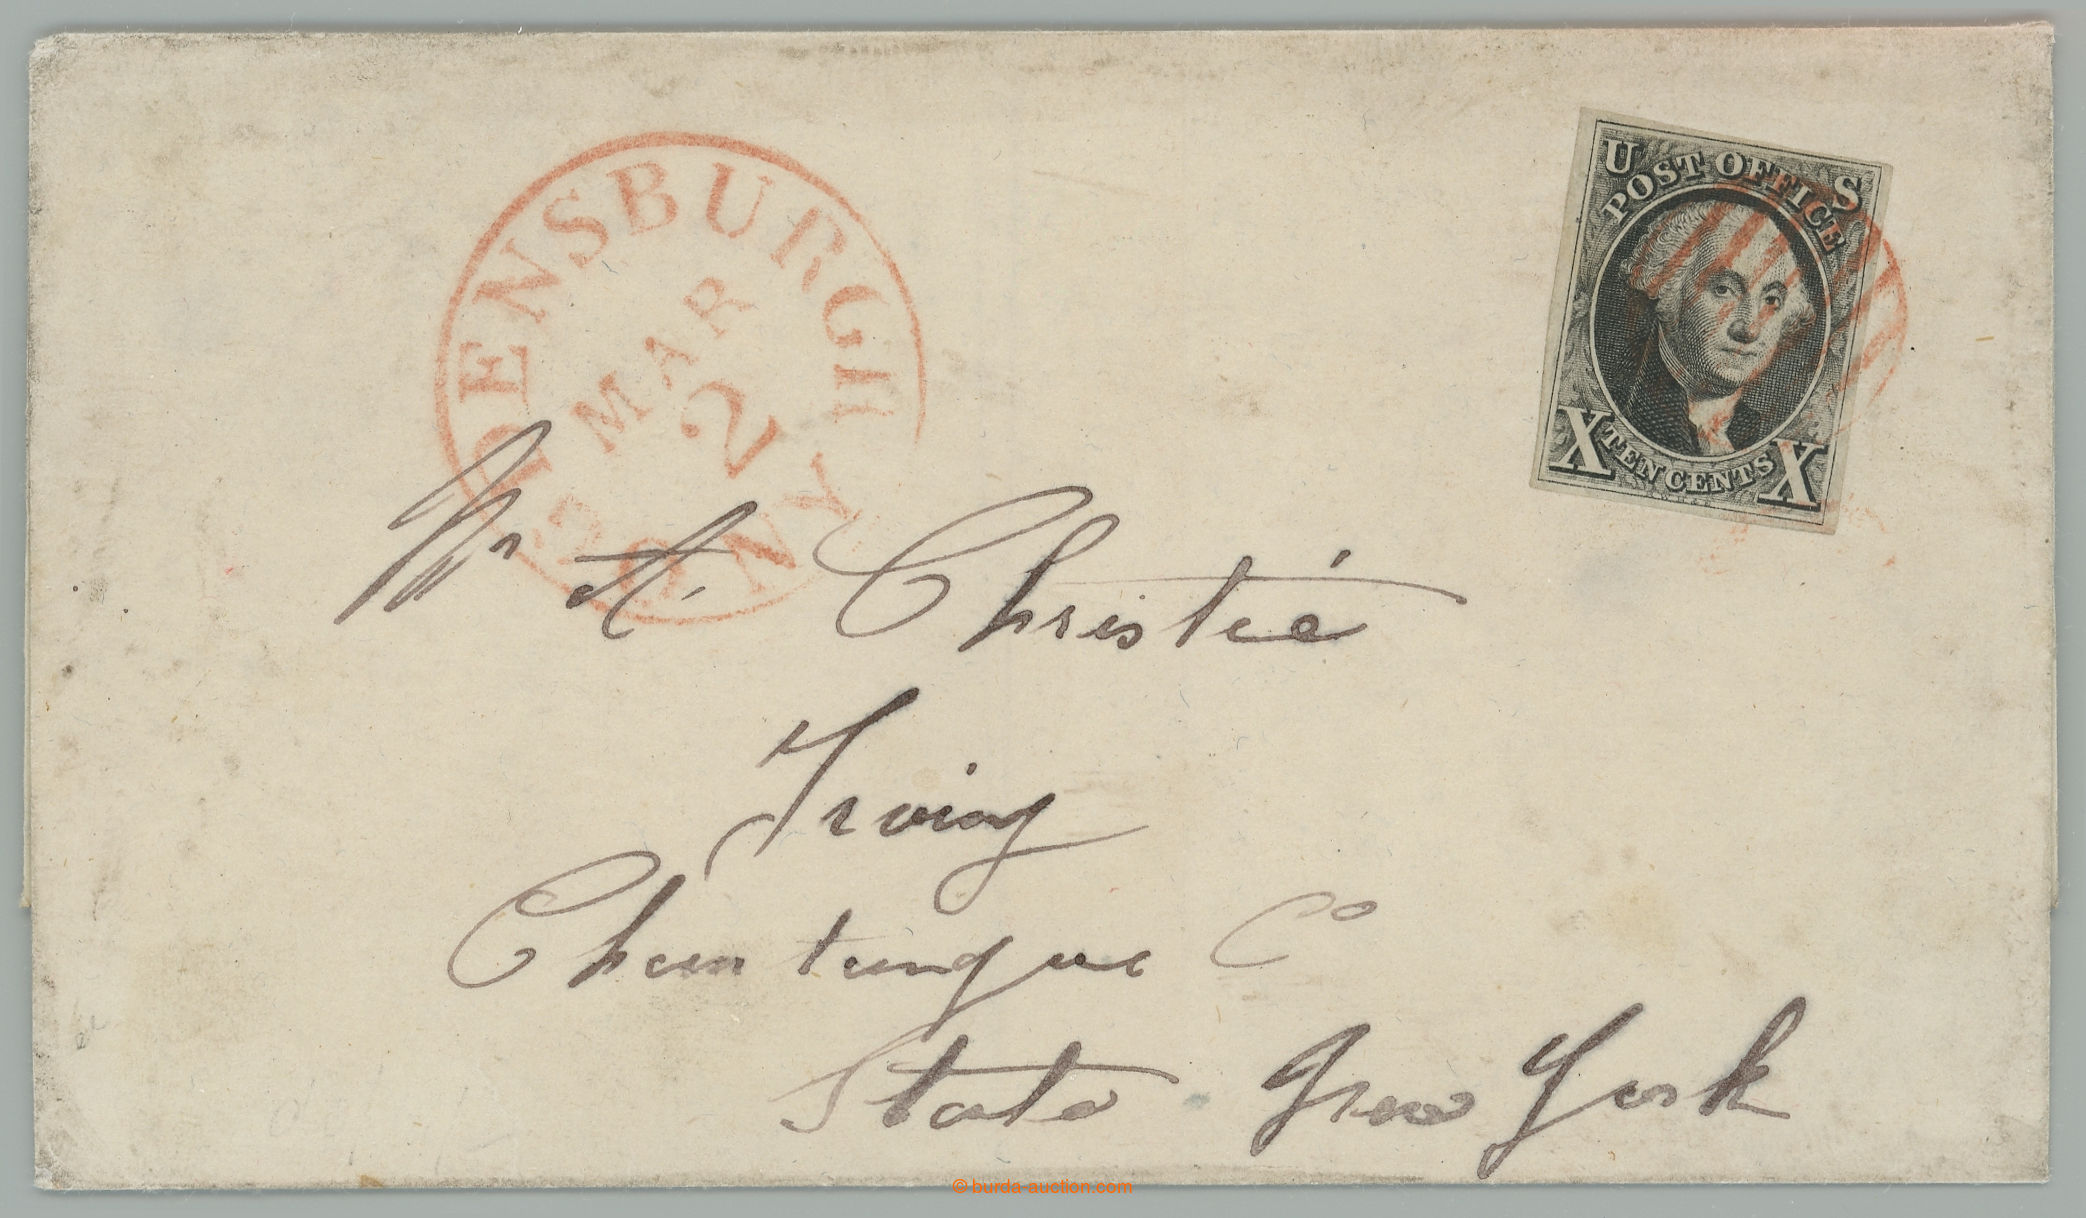 OGDENSBURGH
MAR
2
NY
U S
POST OFFICE
X TEN CENTS X
Mr A. Christie
Irving
Chautauque Co
State New York
© burda-auction.com